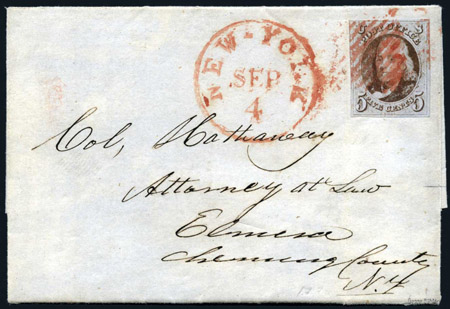 NEW-YORK
SEP
4
POST OFFICE
FIVE CENTS
5 5
Col, Hathaway
Attorney at Law
Elmira
Chemung County
N.Y